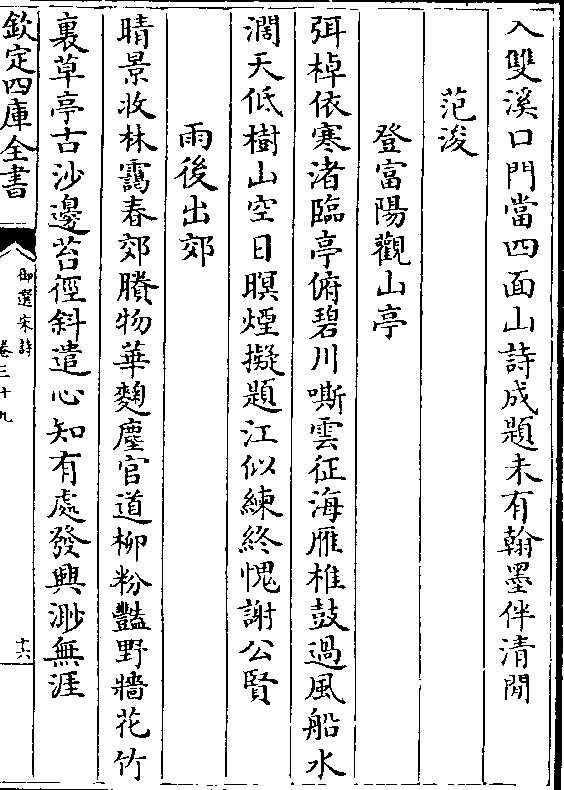 入雙溪口門當四面山詩成題未有翰墨伴清閒
范浚
登富陽觀山亭
弭棹依寒渚臨亭俯碧川嘶雲征海雁椎鼓過風船水
濶天低樹山空日暝煙擬題江似練終愧謝公賢
雨後出郊
晴景妝林靄春郊賸物華麴塵官道柳粉豔野牆花竹
裏草亭古沙邊苔徑斜遣心知有處發興渺無涯
欽定四庫全書
御選宋詩
卷三十九
十六